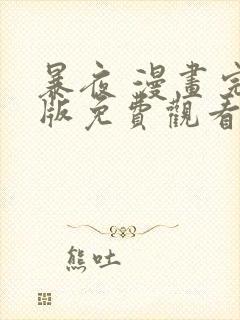 暴夜 漫畫完
版免費觀看
熊吐